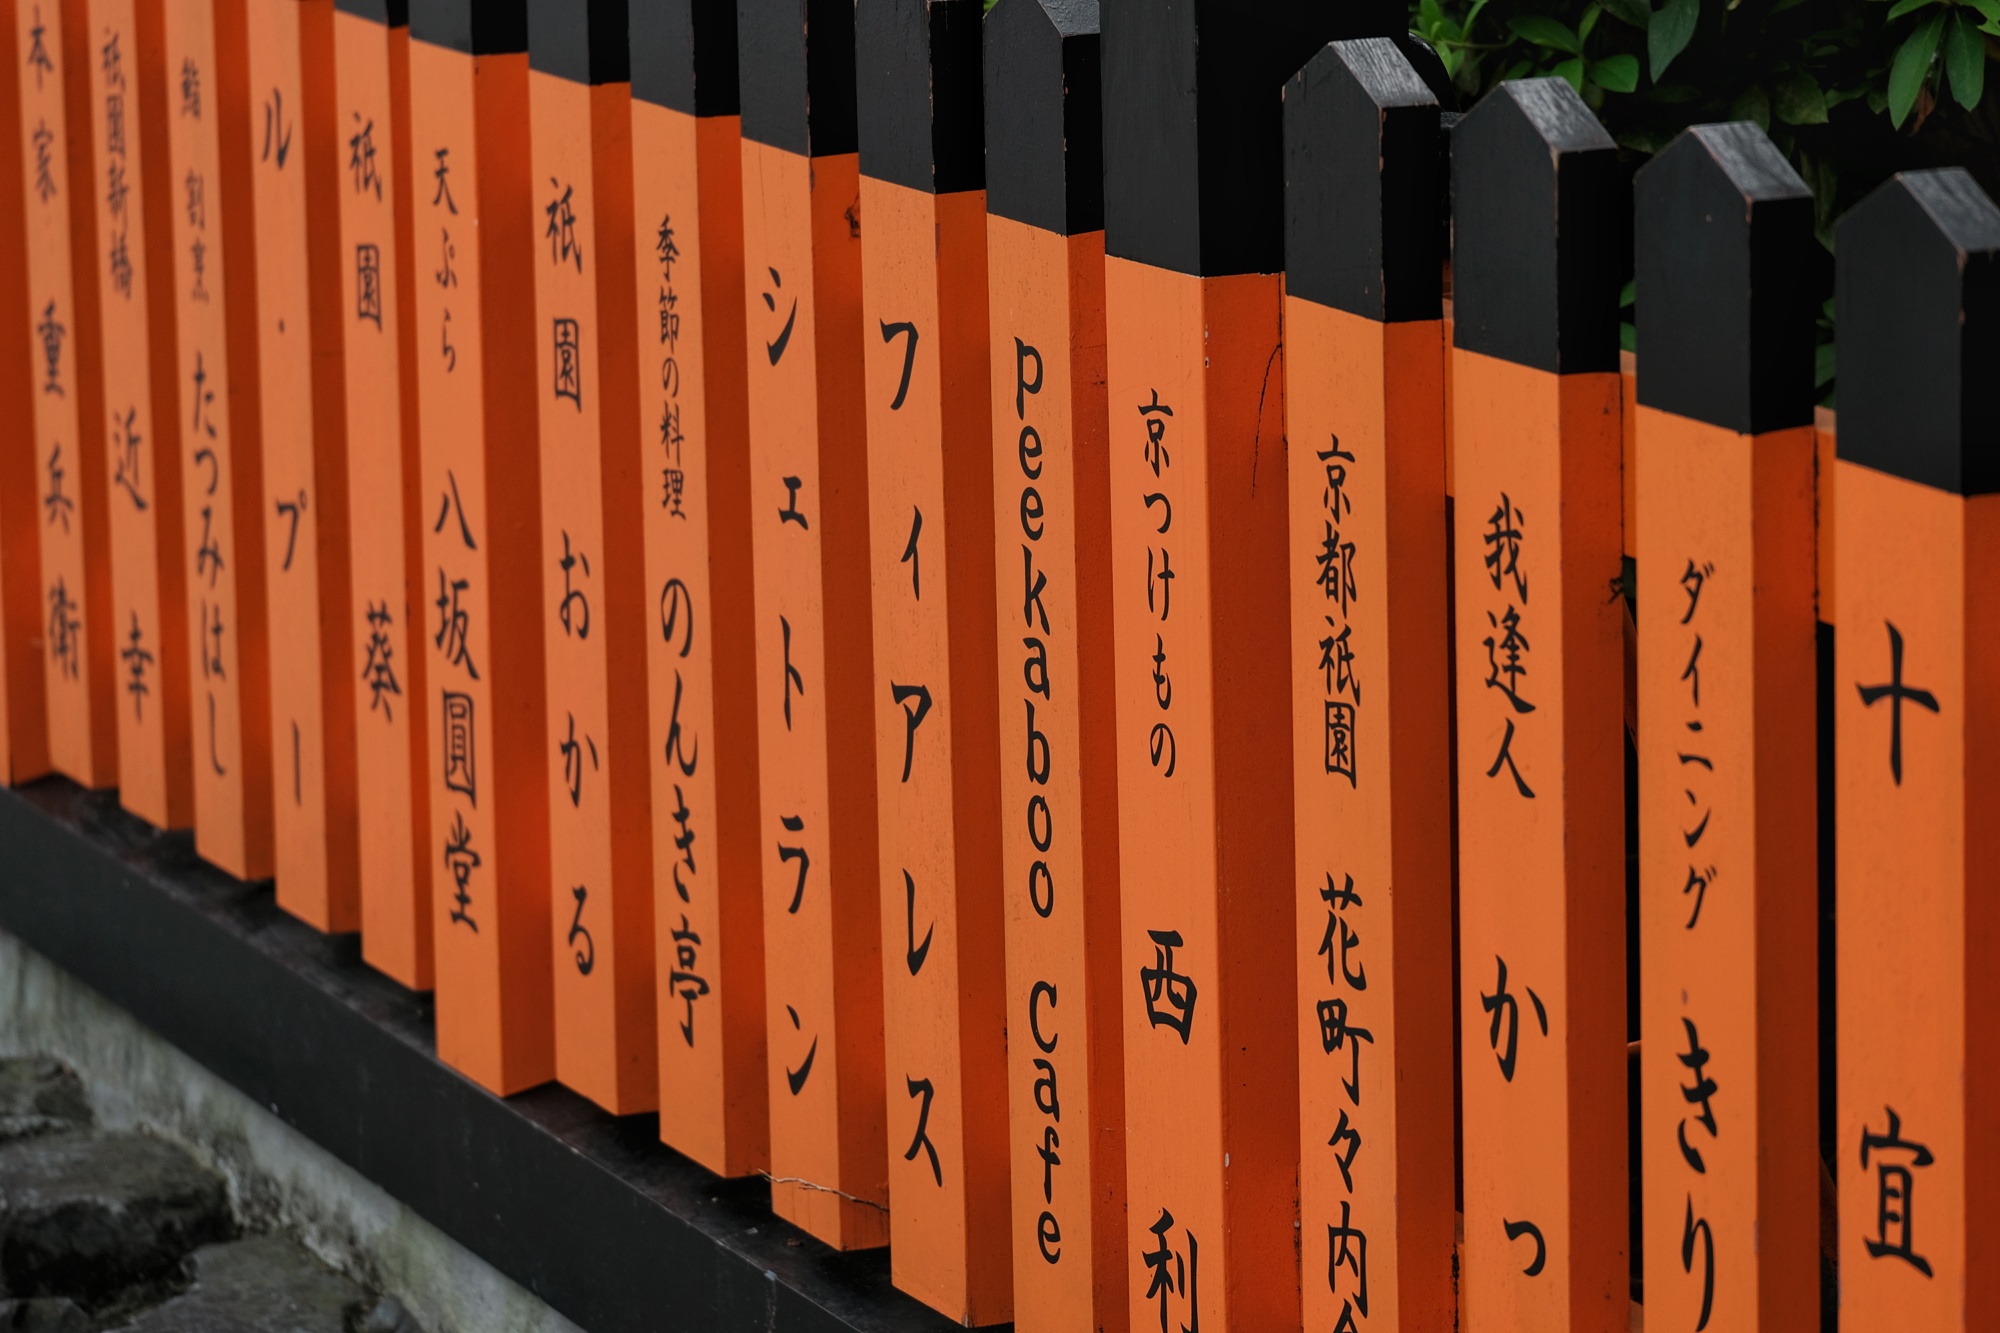 十宜
ダイニング きり
我逢人 かっ
京都祇園 花町々内会
京つけもの 西利
peekaboo cafe
フィアレス
シェトラン
季節の料理 のんき亭
祇園 おかる
天ぷら 八坂圓堂
祇園 葵
ル・プー
鮨 割烹 たつみはし
祇園新橋 近幸
本家 重兵衛